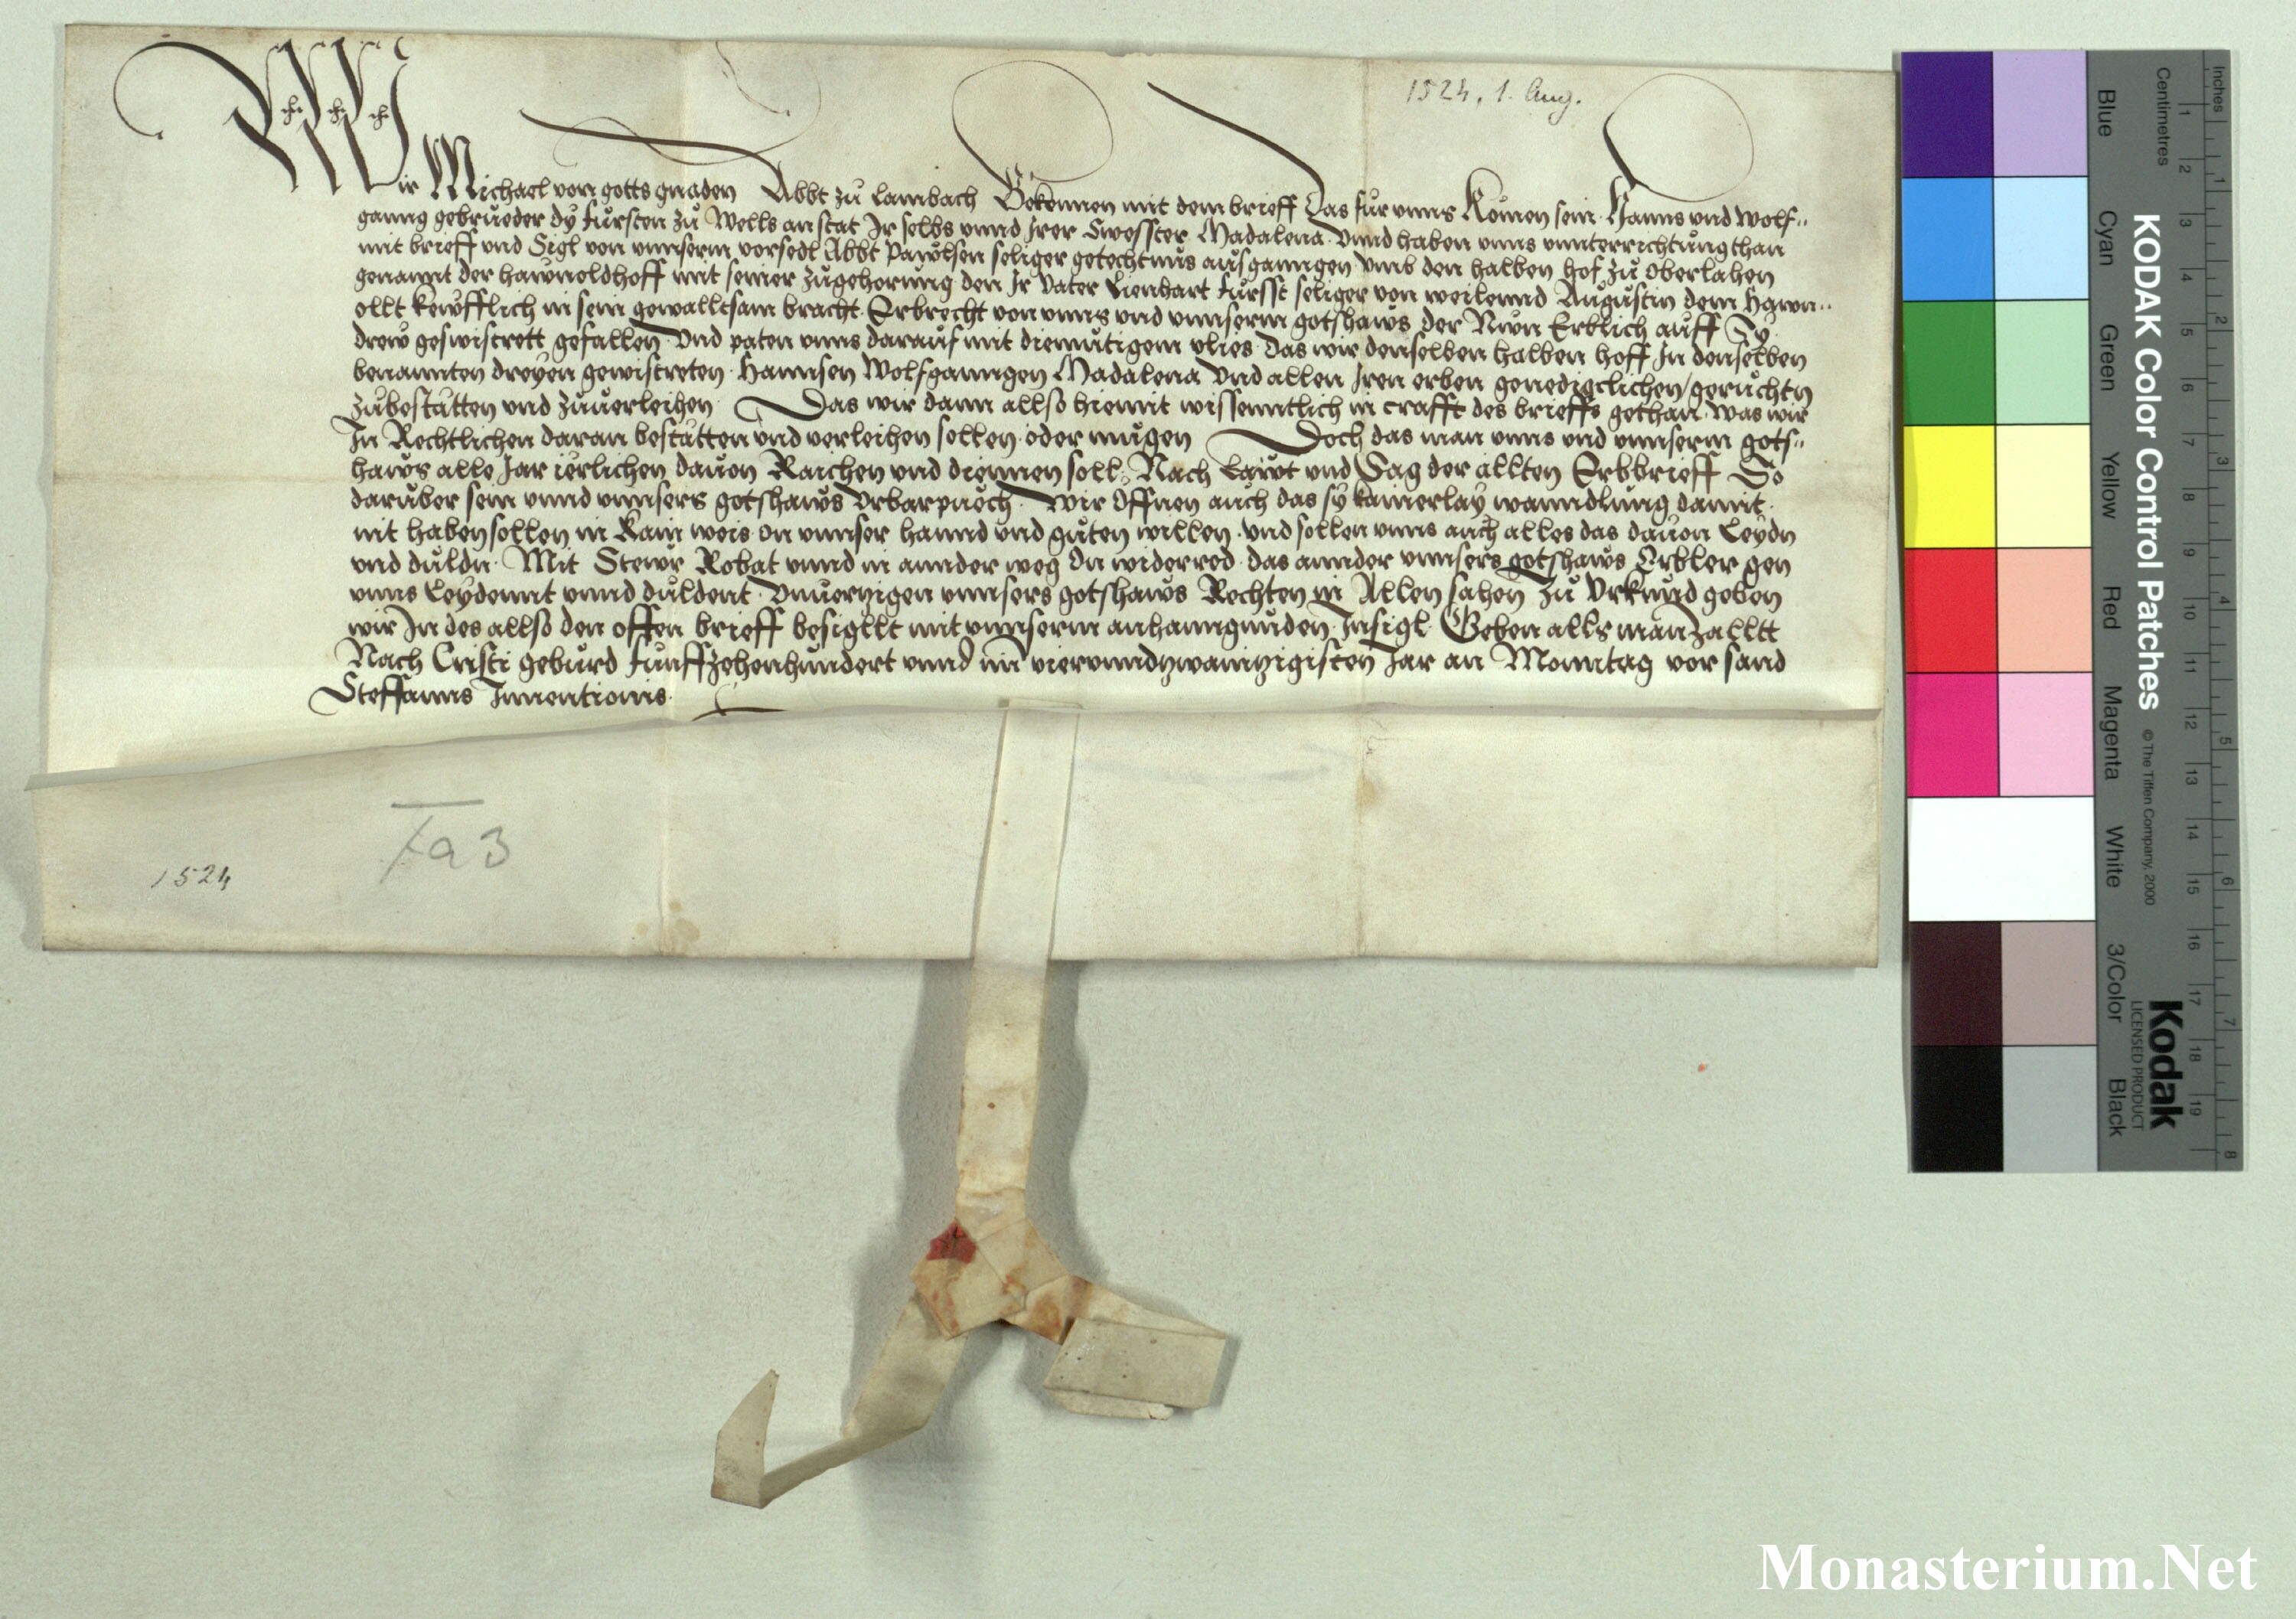 1524, 1. Aug.
Wir Michael von gotts gnaden Abbt zů Lambach Bekennen mit dem brieff Das fur vnns Komen sein Hanns vnd Wolf„
ganng gebrueder dy fursten zů Wells an stat Ir selbs vnnd Irer Swesster Madalena vnnd haben vnns vnnterrichtůng than
mit brieff vnd Sigl von vnnserm vorfedl Abbt Pawlsen seliger getechtnus aůsganngen vmb den halben hof zů Oberlahen
genannt der hawnoldhoff mit seiner zůgehorung den Ir Vater Lienhart fursst seliger von weilennd Aůgůstin dem Hawn„
ollt kewfflich in sein gewalltsam bracht Erbrecht von vnns vnd vnnserm gotshaws der Nwn Erblich aůff Sy
drew geswistrett gefallen Vnd paten vnns daraůf mit diemůtigem vlies Das wir denselben halben hoff In denselben
benannten dreyen gewistreten Hannsen Wolfganngen Madalena Vnd allen Iren erben genedigclichen geruchtn
zůbestatten vnd zůuerleihen Das wir dann allso hiemit wissenntlich in crafft des brieffs gethan Was wir
In Rechtlichen daran bestatten vnd verleihen sollen oder mugen Doch das man vnns vnd vnnserm gots„
haws alle Jar ierlichen dauon Raichen vnd diennen soll Nach Lawt vnd Sag der allten Erbbrieff So
daruber sein vnnd vnnsers gotshaws Vrbarpuech Wir Offnen auch das sy kainerlay wanndlung damit
nit haben sollen in kain weis on vnnser hannd vnd guten willen vnd sollen vnns auch alles das dauon Leydn
vnd duldn Mit Stewr Robat vnnd in annder weg On widerred das annder vnnsers gotshaws Erbler gen
vnns Leydennt vnnd duldent Vnuerzigen vnnsers gotshaws Rechten in Allen sahen Zů Vrkund geben
wir In des allso den offen brieff besigllt mit vnnserm anhanngunden Insigl Geben alls man zalltt
Nach Cristi geburd funffzehenhundert vnnd im viervnndzwainzigisten Jar an Monntag vor sand
Steffanns Innentionis
Fa3
1524
KODAK Color Control Patches
© The Tiffen Company, 2000
Kodak
LICENSED PRODUCT
Blue Cyan Green Yellow Red Magenta White 3/Color Black
Inches 1 2 3 4 5 6 7 8
Centimetres 1 2 3 4 5 6 7 8 9 10 11 12 13 14 15 16 17 18 19
Monasterium.Net